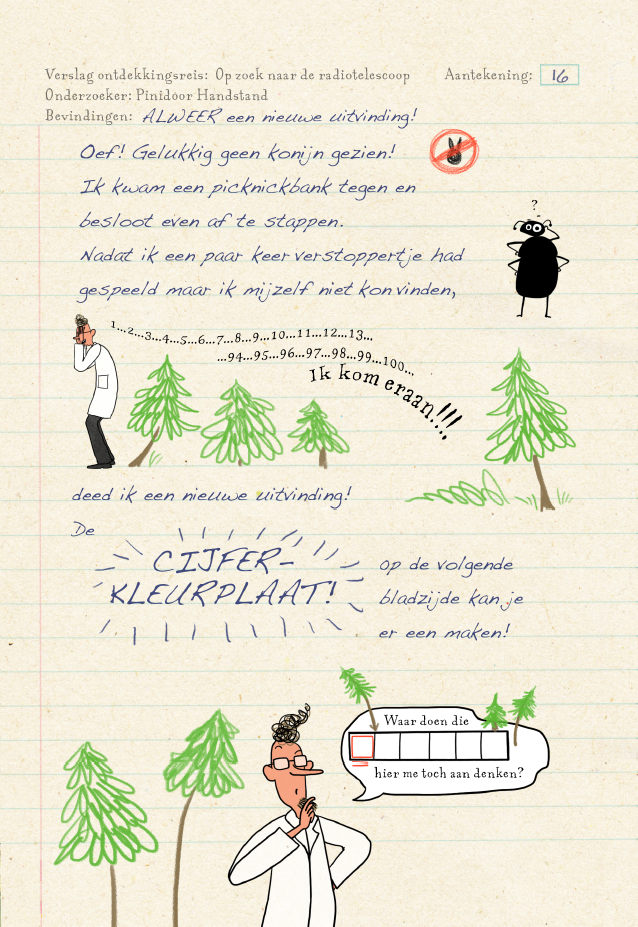 Verslag ontdekkingsreis: Op zoek naar de radiotelescoop Aantekening: 16
Onderzoeker: Pinidoor Handstand
Bevindingen: ALWEER een nieuwe uitvinding!
Oef! Gelukkig geen konijn gezien!
Ik kwam een picknickbank tegen en
besloot even af te stappen.
?
Nadat ik een paar keer verstoppertje had
gespeeld maar ik mijzelf niet kon vinden,
1...2...3...4...5...6...7...8...9...10...11...12...13...
...94...95...96...97...98...99...100...
Ik kom eraan...!!!
deed ik een nieuwe uitvinding!
De
CIJFER-
KLEURPLAAT!
op de volgende
bladzijde kan je
er een maken!
Waar doen die
hier me toch aan denken?